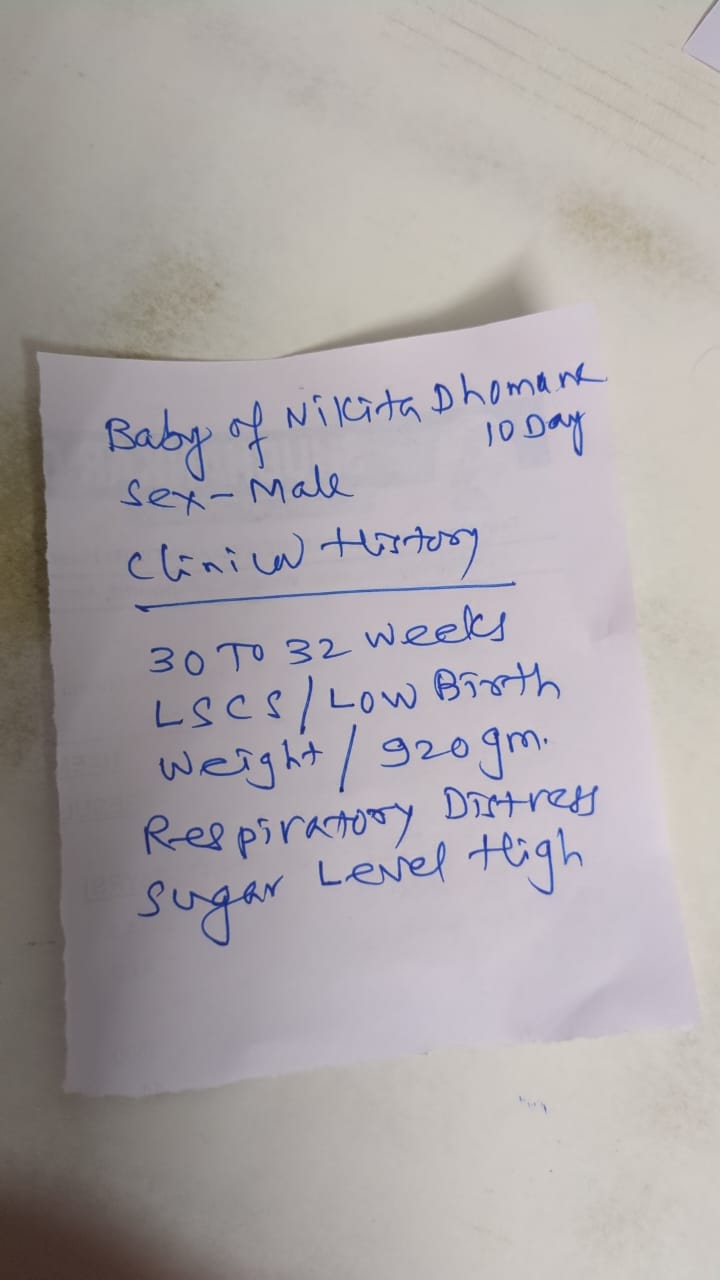 Baby of Nikita Dhomane
10 Day
Sex - Male
Clinical History
30 TO 32 weeks
LSCS / Low Birth
Weight / 920 gm.
Respiratory Distress
Sugar Level High